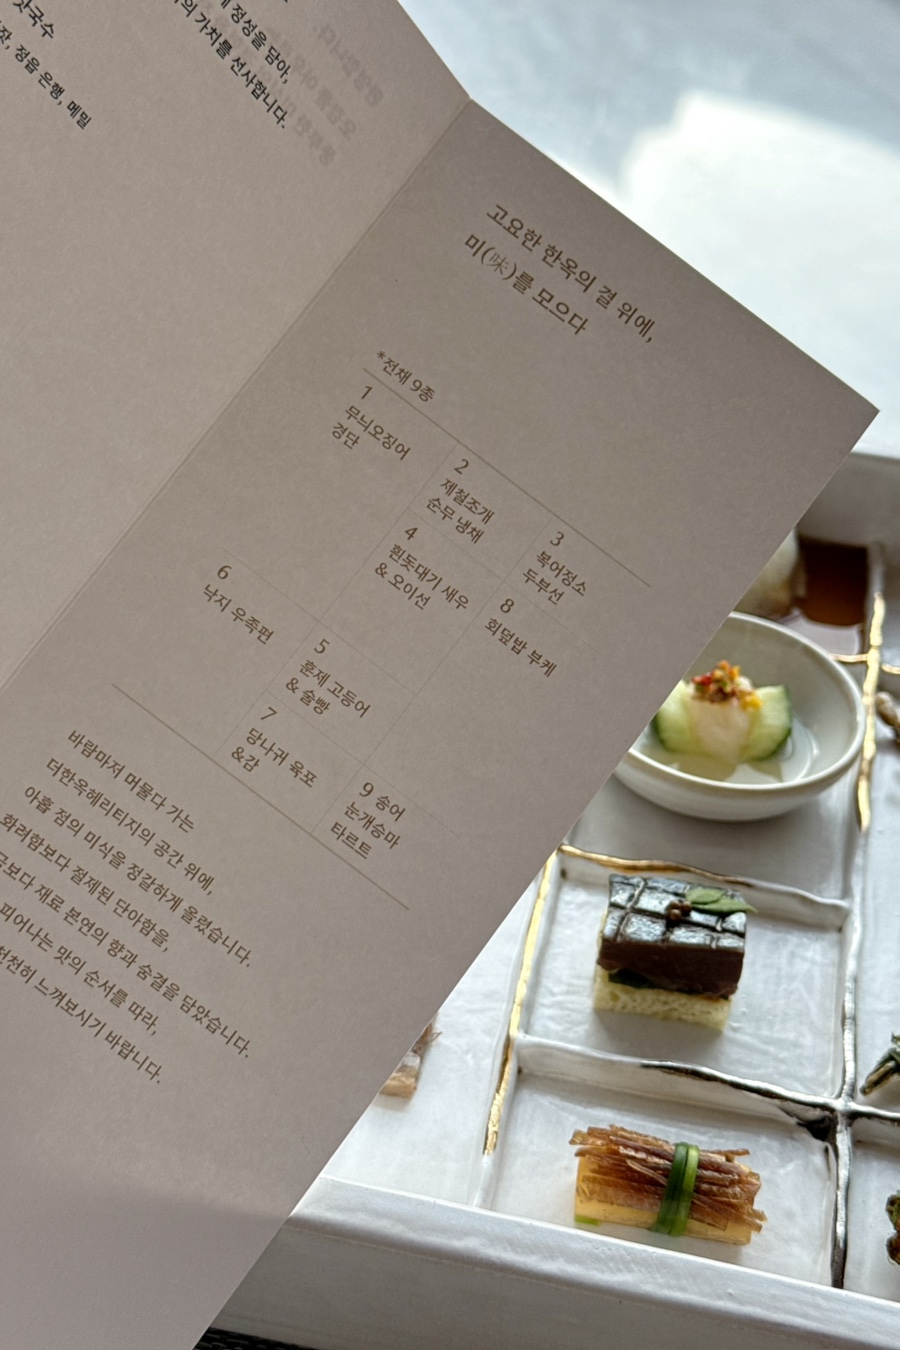 갓국수
잣, 정읍 은행, 메밀
정성을 담아,
의 가치를 선사합니다.
고요한 한옥의 결 위에,
미(味)를 모으다
*전채 9종
1
무늬오징어
경단
2
제철조개
순무 냉채
3
복어정소
두부선
4
흰돗대기 새우
& 오이선
8
회덮밥 부케
6
낙지 우족편
5
훈제 고등어
& 술빵
7
당나귀 육포
&감
9 송어
눈개승마
타르트
바람마저 머물다 가는
더한옥헤리티지의 공간 위에,
아홉 점의 미식을 정갈하게 올렸습니다.
화려함보다 절제된 단아함을,
보다 재료 본연의 향과 숨결을 담았습니다.
피어나는 맛의 순서를 따라,
천천히 느껴보시기 바랍니다.